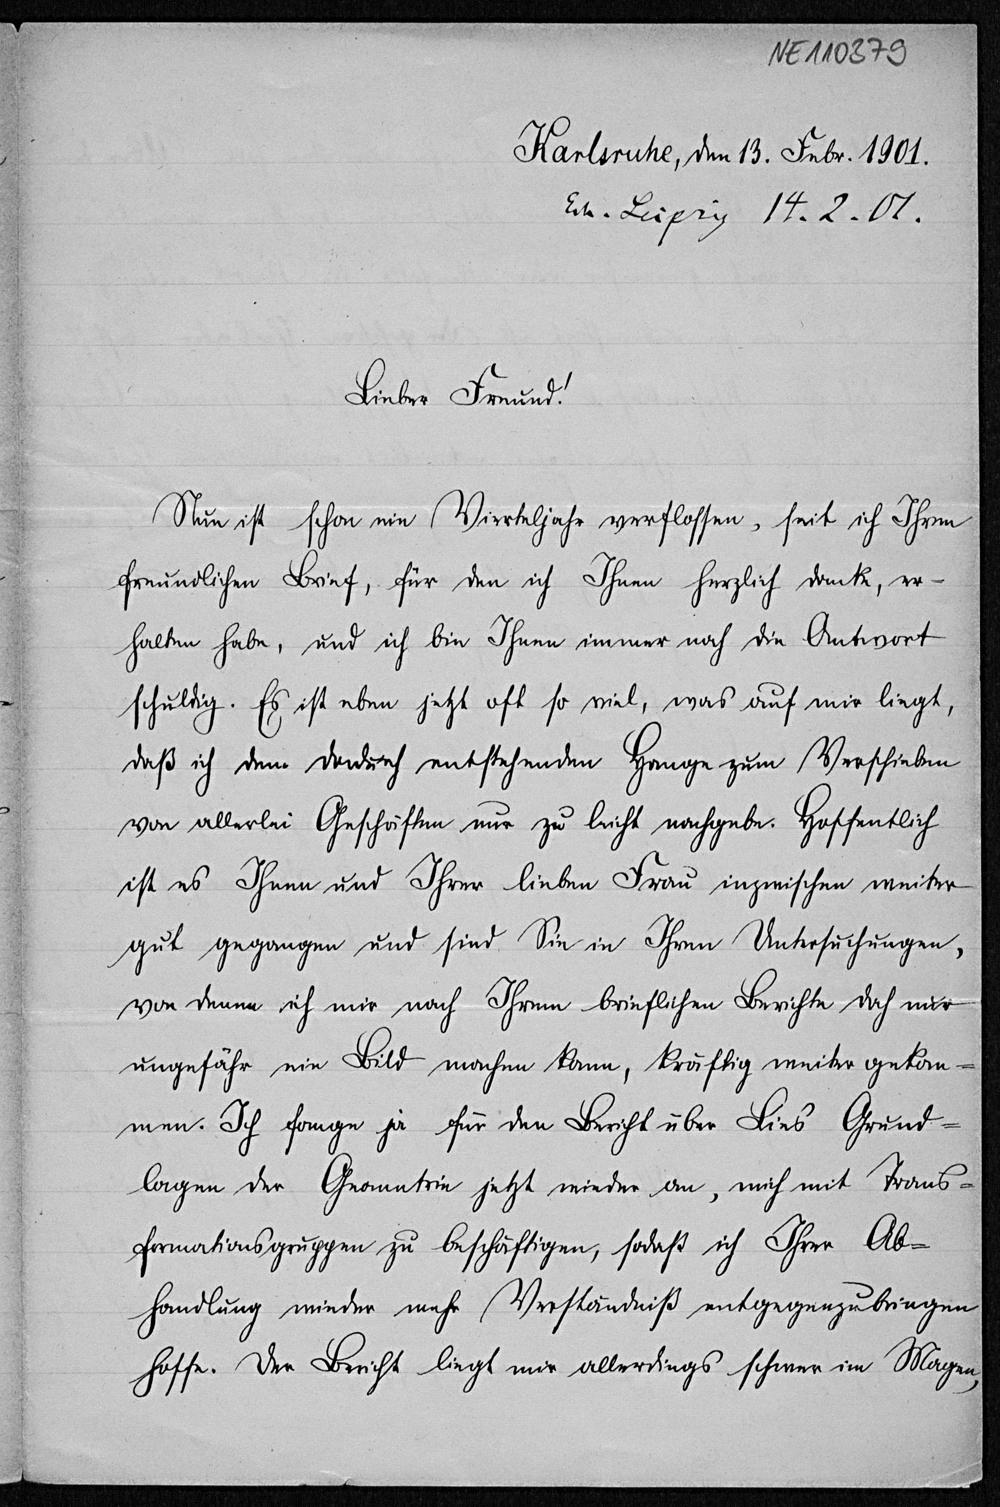 NE110379
Karlsruhe, den 13. Febr. 1901.
Erh. Leipzig 14. 2. 01.
Lieber Freund!
Nun ist schon ein Vierteljahr verflossen, seit ich Ihren
freundlichen Brief, für den ich Ihnen herzlich danke, er-
halten habe, und ich bin Ihnen immer noch die Antwort
schuldig. Es ist eben jetzt oft so viel, was auf mir liegt,
daß ich dem dadurch entstehenden Hange zum Verschieben
von allerlei Geschäften nur zu leicht nachgebe. Hoffentlich
ist es Ihnen und Ihrer lieben Frau inzwischen weiter
gut gegangen und sind Sie in Ihren Untersuchungen,
von denen ich mir nach Ihrem brieflichen Berichte doch nur
ungefähr ein Bild machen kann, kräftig weiter gekom=
men. Ich fange ja für den Bericht über Lies Grund=
lagen der Geometrie jetzt wieder an, mich mit Trans=
formationsgruppen zu beschäftigen, sodaß ich Ihrer Ab=
handlung wieder mehr Verständniß entgegenzubringen
hoffe. Der Bericht liegt mir allerdings schwer im Magen,